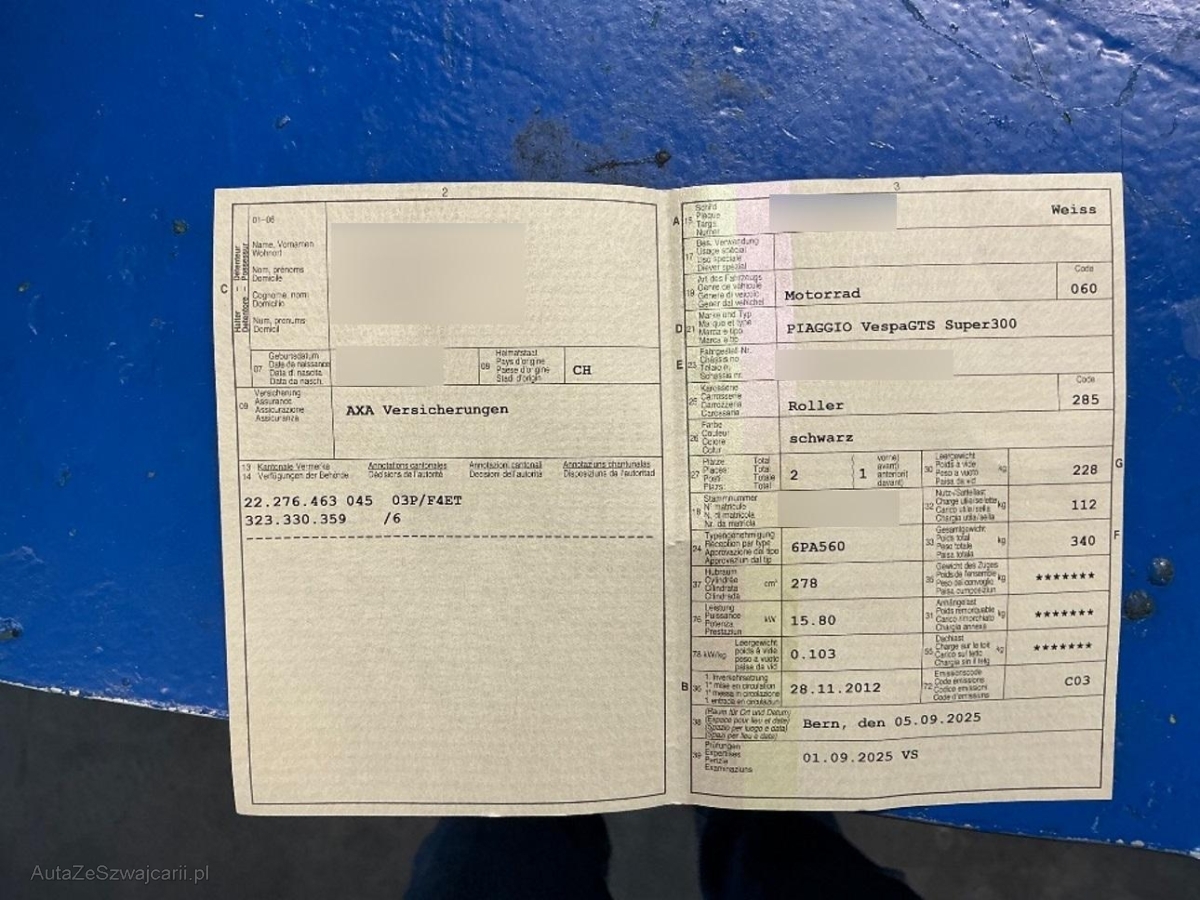 2
01-06
Name, Vornamen
Wohnort
Nom, prénoms
Domicile
Cognome, nomi
Domicilio
Num, prenums
Domicil
C
Halter Détenteur
Detentore Possessur
07
Geburtsdatum
Date de naissance
Data di nascita
Data da nasch.
08
Heimatstaat
Pays d'origine
Paese d'origine
Stadi d'origin
CH
09
Versicherung
Assurance
Assicurazione
Assicuranza
AXA Versicherungen
13 Kantonale Vermerke Annotations cantonales Annotazioni cantonali Annotaziuns chantunalas
14 Verfügungen der Behörde Décisions de l'autorité Decisioni dell'autorità Disposiziuns da l'autoritad
22.276.463 045 03P/F4ET
323.330.359 /6
3
A 15
Schild
Plaque
Targa
Numer
Weiss
17
Bes. Verwendung
Usage spécial
Uso speciale
Diever spezial
19
Art des Fahrzeugs
Genre de véhicule
Genere di veicolo
Gener dal vehichel
Motorrad
Code
060
D 21
Marke und Typ
Marque et type
Marca e tipo
Marca e tip
PIAGGIO VespaGTS Super300
E 23
Fahrgestell Nr.
Châssis no
Telaio n.
Schassis nr.
25
Karosserie
Carrosserie
Carrozzeria
Carossaria
Roller
Code
285
26
Farbe
Couleur
Colore
Colur
schwarz
27
Plätze: Total
Places: Total
Posti: Totale
Plazs: Total
2
vorne)
avant)
anteriori)
davant)
1
30
Leergewicht
Poids à vide
Peso a vuoto
Paisa da vid
kg
228
G
18
Stammnummer
N° matricule
N. di matricola
Nr. da matricla
32
Nutz-/Sattellast
Charge utile/sellette
Carico utile/sella
Chargia utila/sella
kg
112
24
Typengenehmigung
Réception par type
Approvazione del tipo
Approvaziun dal tip
6PA560
33
Gesamtgewicht
Poids total
Peso totale
Paisa totala
kg
340
F
37
Hubraum
Cylindrée
Cilindrata
Cilindrada
cm³
278
35
Gewicht des Zuges
Poids de l'ensemble
Peso del convoglio
Paisa cumposiziun
kg
*******
76
Leistung
Puissance
Potenza
Prestaziun
kW
15.80
31
Anhängelast
Poids remorquable
Carico rimorchiato
Chargia annexa
kg
*******
78 kW/kg
Leergewicht
poids à vide
peso a vuoto
paisa da vid
0.103
55
Dachlast
Charge sur le toit
Carico sul tetto
Chargia sin il tetg
kg
*******
B 36
1. Inverkehrsetzung
1re mise en circulation
1a messa in circolazione
1 entrada en circulaziun
28.11.2012
72
Emissionscode
Code émissions
Codice emissioni
Code d'emissiuns
C03
38
(Raum für Ort und Datum)
(Espace pour lieu et date)
(Spazio per luogo e data)
(Spazi per lieu e data)
Bern, den 05.09.2025
39
Prüfungen
Expertises
Perizie
Examinaziuns
01.09.2025 VS
AutaZeSzwajcarii.pl